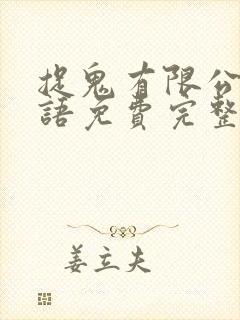 捉鬼有限公
語免費完整
姜立夫